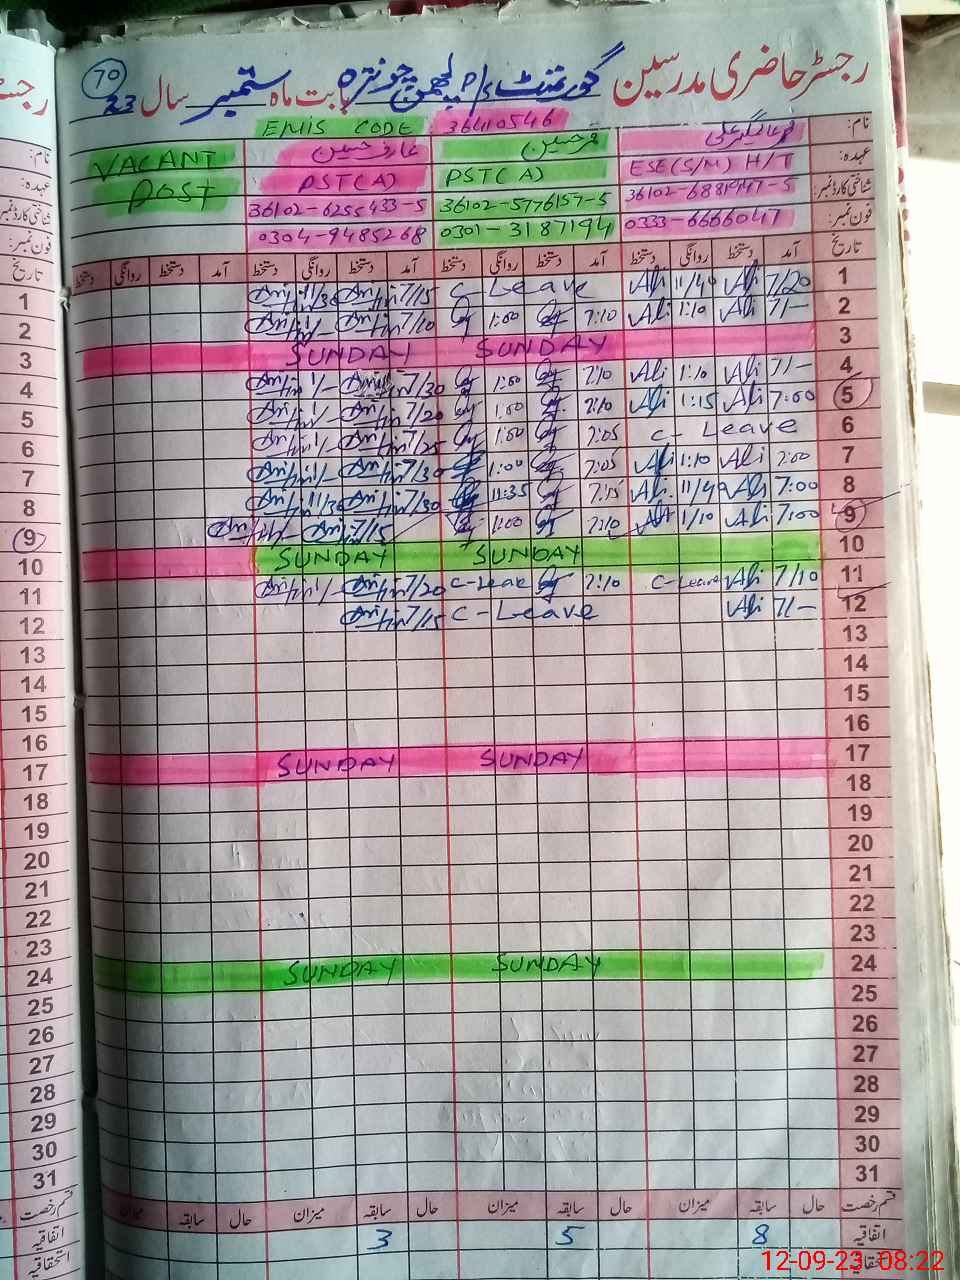 رجسٹر حاضری مدرسین گورنمنٹ P/S لچھمن چونترہ بابت ماہ ستمبر سال 23
70
نام: EMIS CODE 36110546
عارف حسین VACANT
عہدہ: ESE(S/M) H/T PST(A) PST(A) POST
شناختی کارڈ نمبر: 36102-5776157-5 36102-6255433-5
فون نمبر: 0333-6666047 0301-3187194 0304-9485268
تاریخ آمد دستخط روانگی دستخط آمد دستخط روانگی دستخط آمد دستخط روانگی دستخط آمد دستخط روانگی دستخط
1 7/20 Ali 11/40 Ali C-Leave 7/15 11/30
2 7/- Ali 1:10 Ali 7:10 1:00 7/10 1/-
3 SUNDAY SUNDAY
4 7/- Ali 1:10 Ali 7:10 1:00 7/30 1/-
5 7:00 Ali 1:15 Ali 7:10 1:00 7/20 1/-
6 C-Leave 7:05 1:00 7/25 1/-
7 7:00 Ali 1:10 Ali 7:05 1:00 7/30 1/-
8 7:00 Ali 11/40 Ali 7:15 11:35 7/30 11/30
9 7:00 Ali 1/10 Ali 7:10 1:00 7/15 1/-
10 SUNDAY SUNDAY
11 7/10 Ali C-Leave 7:10 C-Leave 7/20 1/-
12 7/- Ali C-Leave 7/15
13
14
15
16
17 SUNDAY SUNDAY
18
19
20
21
22
23
24 SUNDAY SUNDAY
25
26
27
28
29
30
31
قسم رخصت حال سابقہ میزان حال سابقہ میزان حال سابقہ میزان حال سابقہ میزان
اتفاقیہ 8 5 3
استحقاقیہ
12-09-23 08:22